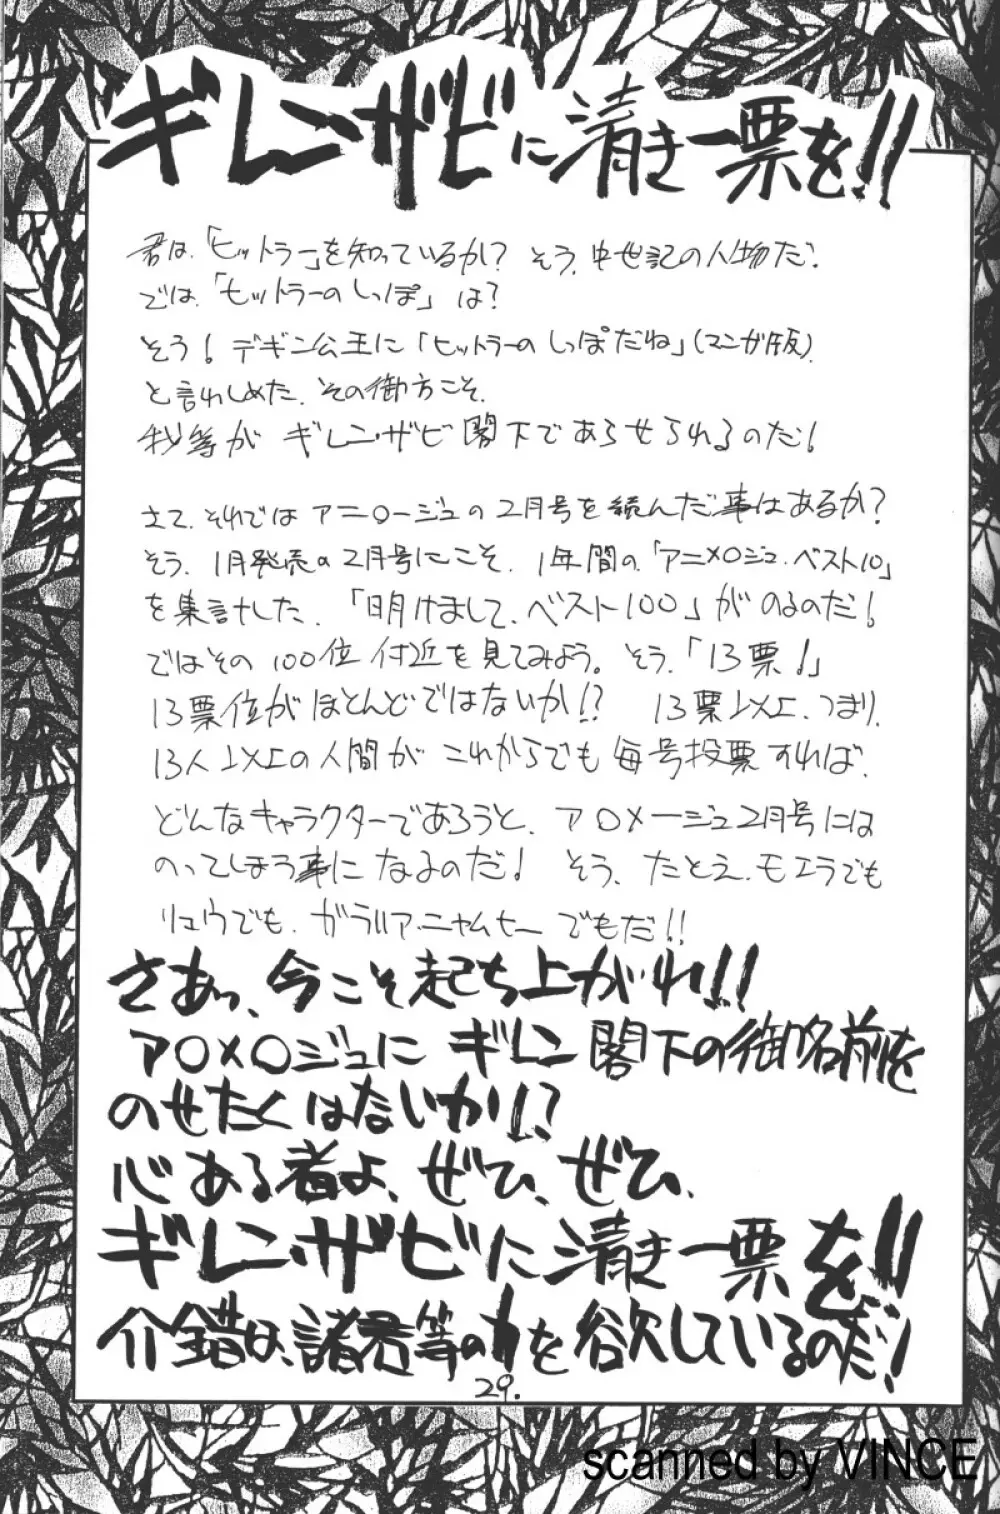 ギレン・ザビに清き一票を!!
君は、「ヒットラー」を知っているか? そう、中世記の人物だ。
では、「ヒットラーのしっぽ」は?
そう! デギン公王に「ヒットラーのしっぽだね」(マンガ版)
と言わしめた、その御方こそ、
我等がギレン・ザビ閣下であらせられるのだ!
さて、それではアニ○ージュの2月号を読んだ事はあるか?
そう、1月発売の2月号にこそ、1年間の「アニメ○ジュ、ベスト10」
を集計した、「明けまして、ベスト100」がのるのだ!
ではその100位付近を見てみよう。そう、「13票!」
13票位がほとんどではないか!? 13票以上、つまり、
13人以上の人間がこれからでも毎号投票すれば、
どんなキャラクターであろうと、ア○メージュ2月号には
のってしまう事になるのだ! そう、たとえ、モエラでも
リュウでも、ガラリア・ニャムヒーでもだ!!
さあっ、今こそ起ち上がれ!!
ア○メ○ジュにギレン閣下の御名前を
のせたくはないか!?
心ある者よ、ぜひ、ぜひ、
ギレン・ザビに清き一票を!!
介錯は、諸君等の力を欲しているのだ!
29.
scanned by VINCE